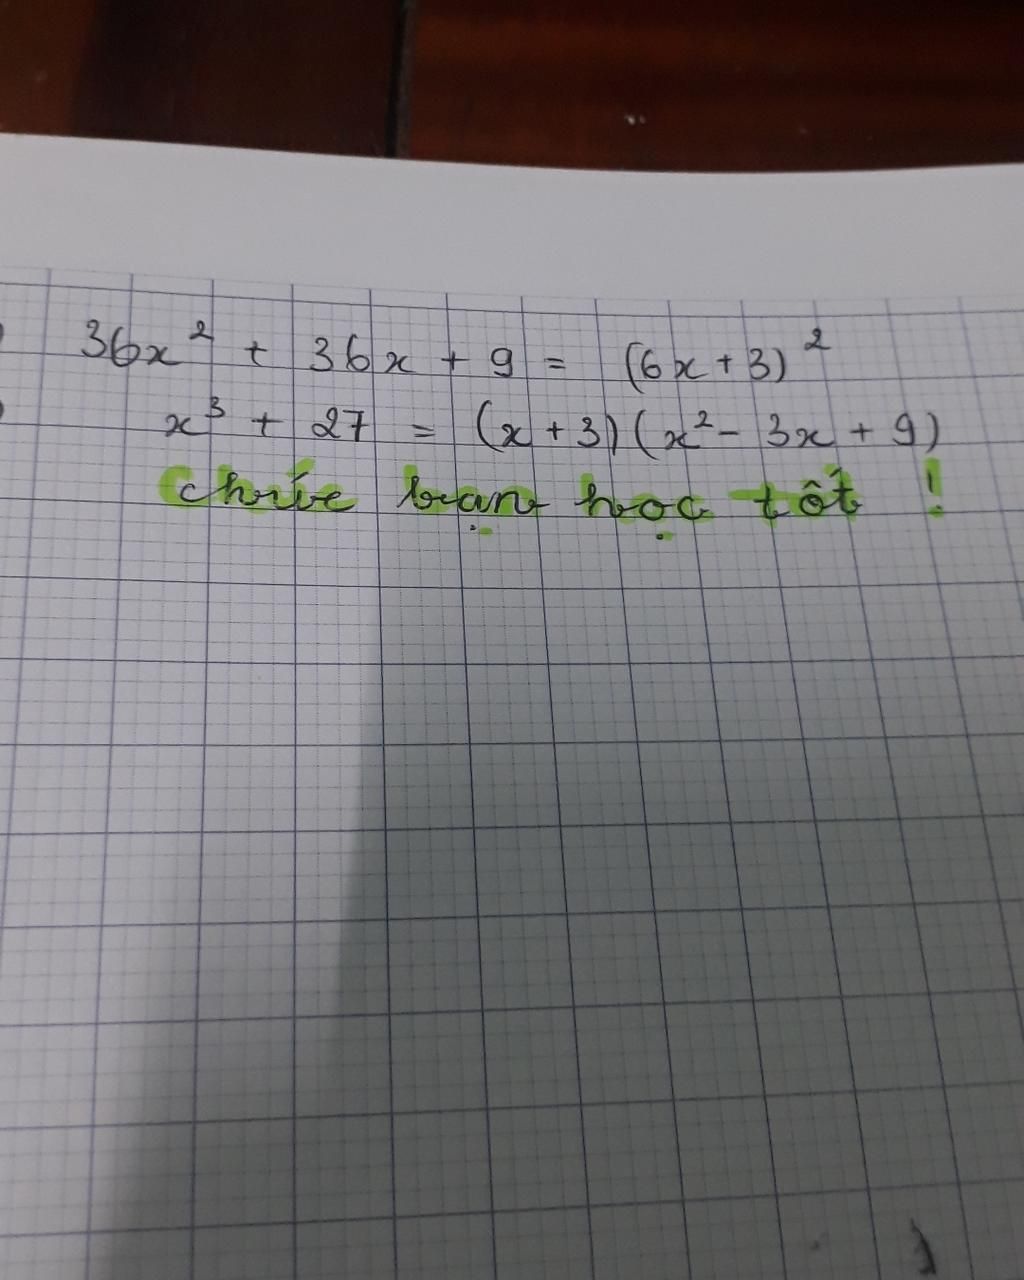 36x² + 36x + 9 = (6x+3)²
x³ + 27 = (x+3)(x²- 3x + 9)
Chúc bạn học tốt !